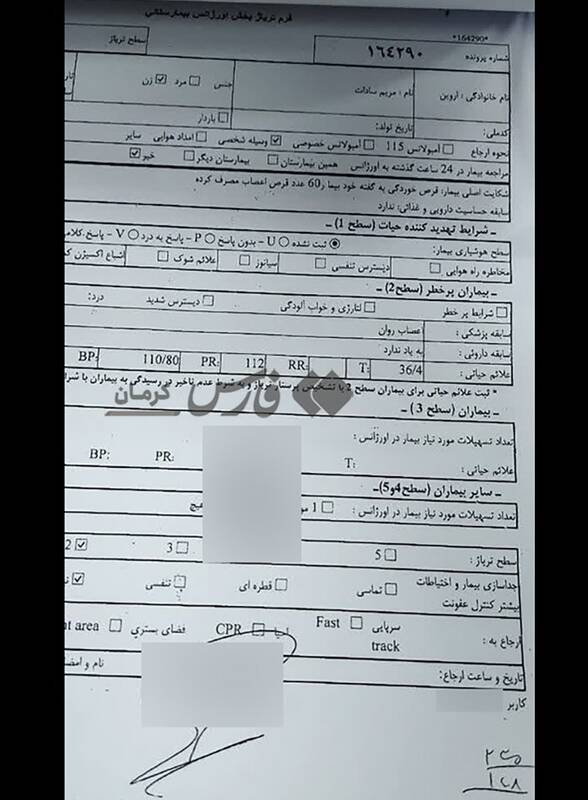 فرم تریاژ بخش اورژانس بیمارستانی
*164290*
شماره پرونده
١٦٤٢٩٠
سطح تریاژ
نام خانوادگی : اروین
نام : مریم سادات
جنس مرد زن
کدملی:
تاریخ تولد:
باردار
نحوه ارجاع آمبولانس 115 آمبولانس خصوصی وسیله شخصی امداد هوایی سایر
مراجعه بیمار در 24 ساعت گذشته به اورژانس همین بیمارستان بیمارستان دیگر خیر
شکایت اصلی بیمار: قرص خوردگی به گفته خود بیمار60 عدد قرص اعصاب مصرف کرده
سابقه حساسیت دارویی و غذائی: ندارد
ـ شرایط تهدید کننده حیات (سطح 1) ـ
سطح هوشیاری بیمار: ثبت نشده U - بدون پاسخ P - پاسخ به درد V - پاسخ کلامی
مخاطره راه هوایی دیسترس تنفسی سیانوز علائم شوک اشباع اکسیژن
ـ بیماران پرخطر (سطح2) ـ
شرایط پر خطر لتارژی و خواب آلودگی دیسترس شدید درد:
سابقه پزشکی : اعصاب روان
سابقه داروئی : به یاد ندارد
علائم حیاتی : T: 36/4 RR: PR: 112 BP: 110/80
* ثبت علائم حیاتی برای بیماران سطح 2 با تشخیص پرستار تریاژ و به شرط عدم تاخیر در رسیدگی به بیماران با
فارس کرمان
ـ بیماران (سطح 3) ـ
تعداد تسهیلات مورد نیاز بیمار در اورژانس :
علائم حیاتی : T: PR: BP:
ـ سایر بیماران (سطح4و5)ـ
تعداد تسهیلات مورد نیاز بیمار در اورژانس : 1 هیچ
سطح تریاژ : 5 3 2
جداسازی بیمار و احتیاطات تماسی قطره ای تنفسی
بیشتر کنترل عفونت
ارجاع به : سرپایی Fast track احیا CPR فضای بستری area
تاریخ و ساعت ارجاع: نام و
کاربر